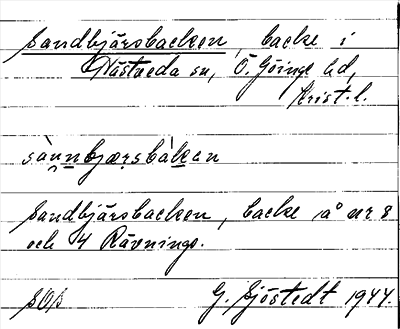 Sandbjärsbacken, backe i
Nästveda sn, Ö. Göinge hd,
Krist. l.
sànnbjærsbàkan
Sandbjärsbacken, backe å nr 8
och 4 Rävninge.
SOB
G. Sjöstedt 1944.